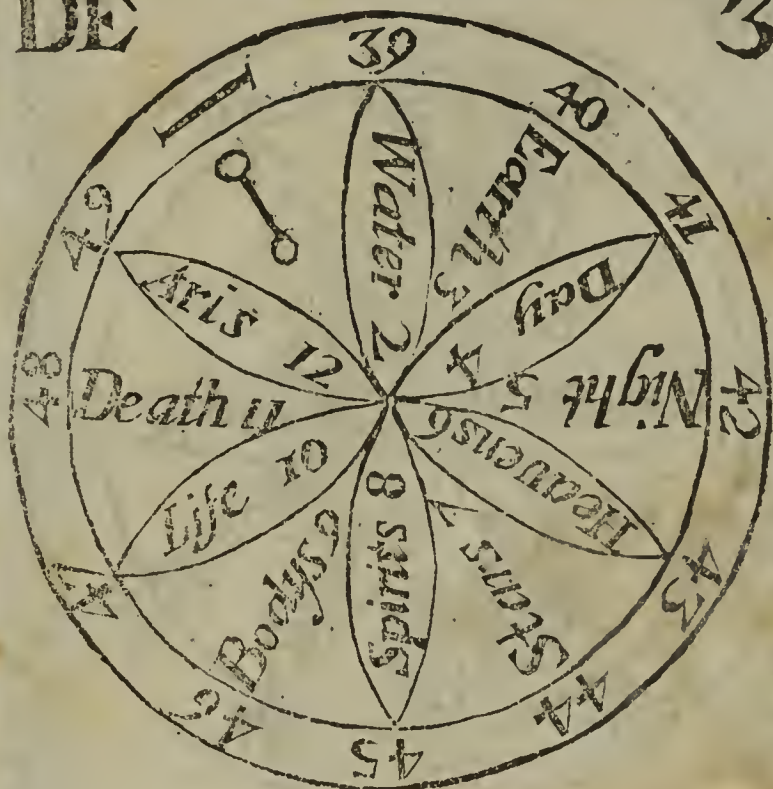 DE
39
40
41
42
43
44
45
46
47
48
49
Water 2
Earth 3
Day 4
Night 5
Heauens 6
7
8
Bodys 9
Life 10
Death 11
Aris 12